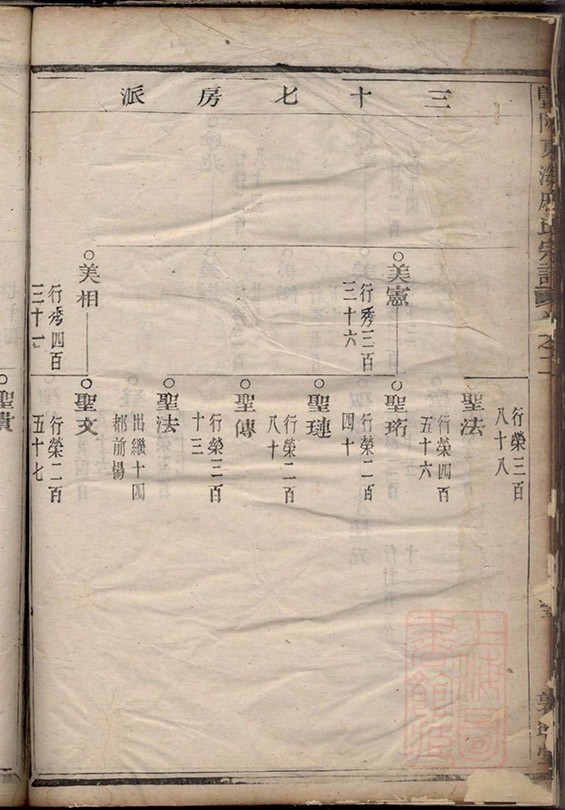 三十七房派
行榮三百
八十八
聖法
行榮四百
五十六
美憲
行秀三百
三十六
聖珩
行榮二百
四十
聖璉
行榮二百
八十
聖傳
行榮三百
十三
聖法
出繼十四
都前楊
美相
行秀四百
三十一
聖文
行榮二百
五十七